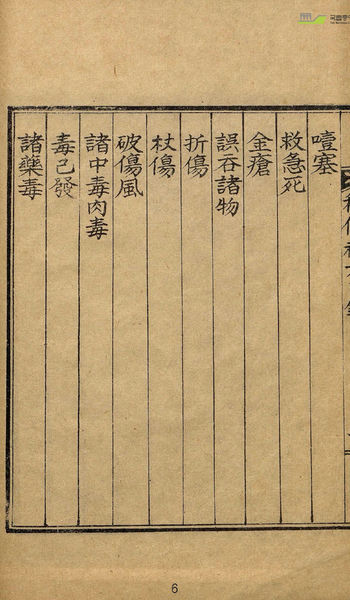 噎塞
救急死
金瘡
誤吞諸物
折傷
杖傷
破傷風
諸中毒肉毒
毒已發
諸藥毒
6